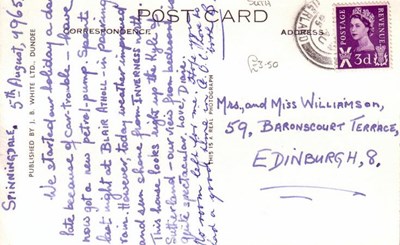 POST CARD
CORRESPONDENCE
£3·50
SPINNINGDALE, 5th August, 1965.
We started our holiday a day
late because of car-trouble – have
now got a new petrol-pump. Spent
last night at BLAIR ATHOLL – in pouring
rain. However, today weather improved
and sun shone from INVERNESS
This house looks right up the Kyle of
Sutherland – our view from bedroom is
quite spectacular. Love, Dorothy.
No room left for me
had a good time
PUBLISHED BY J. B. WHITE LTD., DUNDEE
THIS IS A REAL PHOTOGRAPH
POSTAGE
REVENUE
3d
Mrs, and Miss Williamson,
59, BARONSCOURT TERRACE,
EDINBURGH, 8.